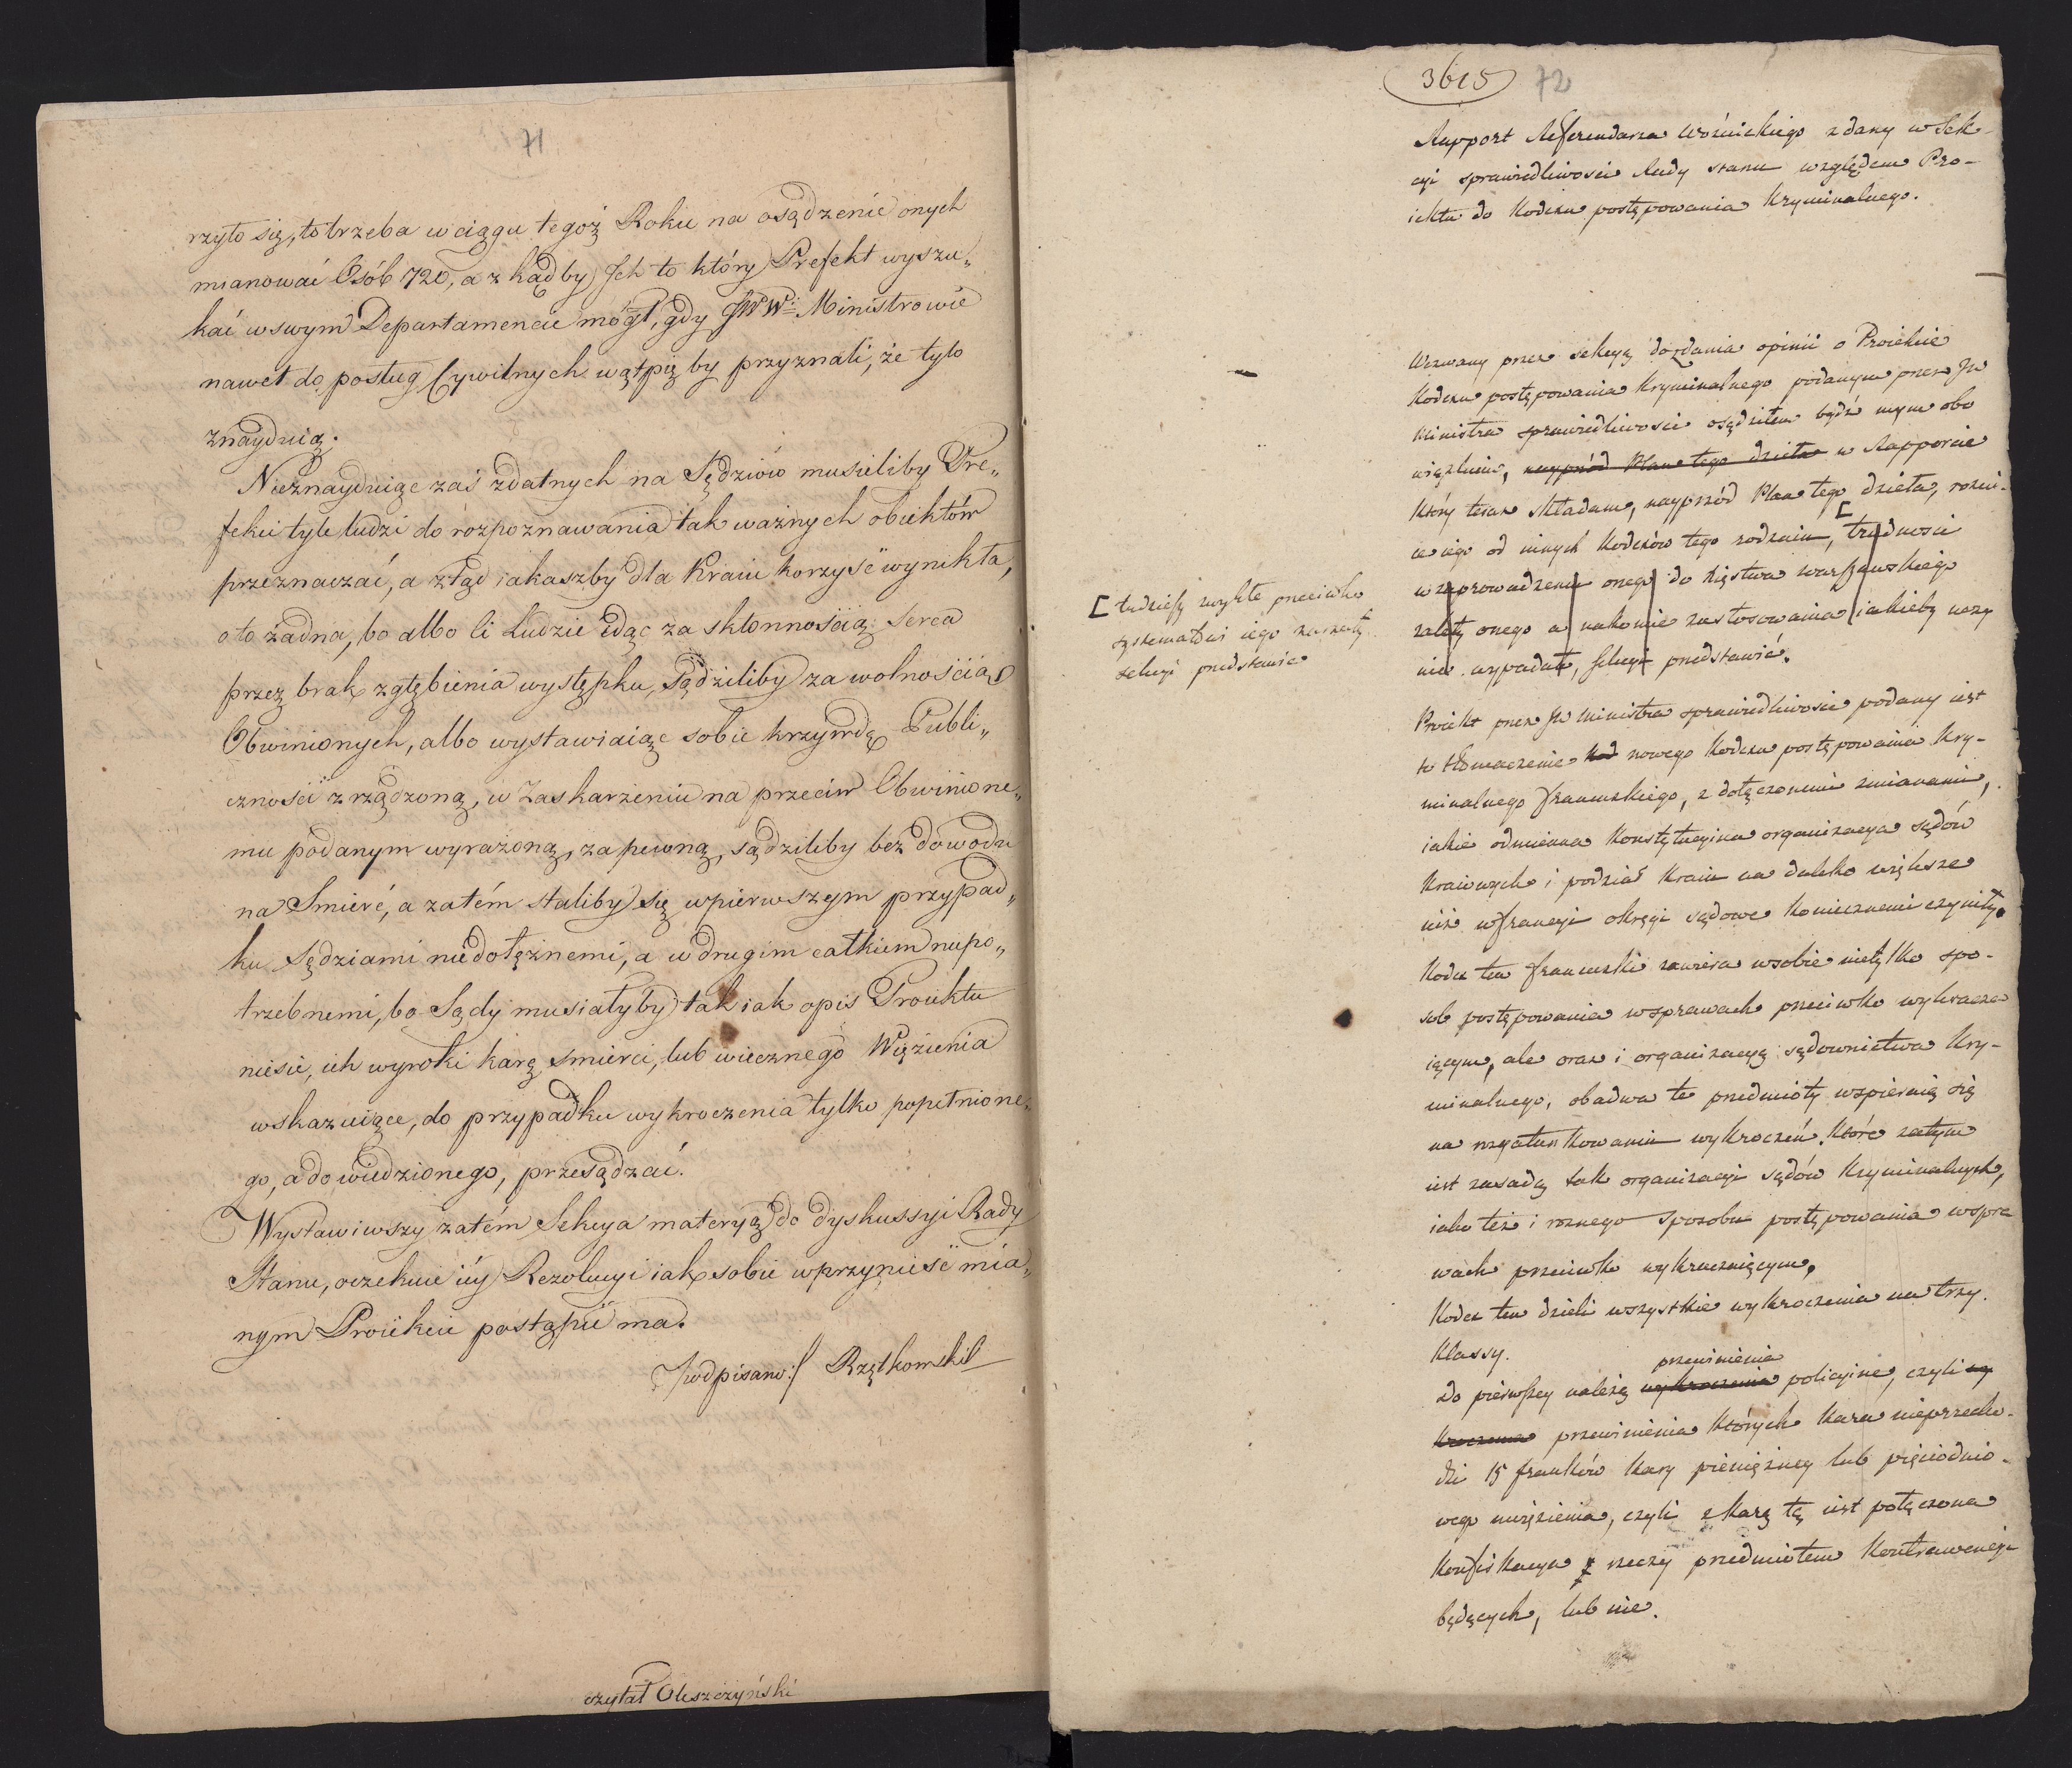 71
rzyło się, to trzeba w ciągu tegoż Roku na osądzenie onych
mianować Osób 720, a z kądby Jch to który Prefekt wyszu„
kać w swym Departamencie mógł, gdy JWWi Ministrowie
nawet do posług Cywilnych wątpię by przyznali, że tylo
znayduią.
Nieznayduiąc zaś zdatnych na Sędziów musieliby Pre„
fekci tyle ludzi do rozpoznawania tak ważnych obiektów
przeznaczać, a ztąd iakaszby dla Kraiu korzyść wynikła,
oto żadna, bo albo li Ludzie idąc za skłonnością Serca
przez brak zgłębienia występku, sądziliby za wolnością
Obwinionych, albo wystawiaiąc sobie krzywdę Publi„
czności zrządzoną, w Zaskarżeniu na przeciw Obwinione„
mu podanym wyrażoną, za pewną, sądziliby bez dowodu
na Smierć, a zatém staliby się w pierwszym przypad„
ku Sędziami niedołężnemi, a w drugim całkiem niepo„
trzebnemi, bo Sądy musiałyby tak iak opis Proiektu
niesie, ich wyroki karę smierci, lub wiecznego Więzienia
wskazuiące, do przypadku wykroczenia tylko popełnione„
go, a dowiedzionego, przesądzać.
Wystawiwszy zatém Sekcya materyą do dyskussyi Rady
Stanu, oczekuie iéy Rezolucyi iak sobie w przynieść mia„
nym Proiekcie postąpić ma.
/podpisano:/ Rzętkowski
czytał Oleszczyński
3615 72
Rapport Referendarza Woźnickiego zdany w Sek-
cyi sprawiedliwosci Rady stanu względem Pro-
iektu do Kodexu postępowania Kryminalnego.
Wezwany przez sekcyą do zdania opinii o Proiekcie
Kodexu postępowania Kryminalnego podanym przez JW
Ministra sprawiedliwosci osądziłem bydź mym obo
wiązkiem, nayprzód Plan tego dzieła w Rapporcie
Który teraz składam, nayprzód Plan tego dzieła, rożni-
ce iego od innych Kodexów tego rodzaiu, [ trudnosci
w zaprowadzeniu onego do Xięstwa warszawskiego
zalety onego a nakonie zastosowania iakieby uczy
nić wypadało, sekcyi przedstawić.
[ tudziesz zwykłe przeciwko
systematowi iego zarzuty
sekcyi przedstawić
Proiekt przez JW Ministra sprawiedliwosci podany iest
to tłomaczenie Kod nowego Kodexu postępowania Kry-
minalnego francuzkiego, z dołączonemi zmianami,
iakie odmienna Konstytucyina organizacya sądów
Kraiowych i podział Kraiu na daleko większe
niż w francyi okręgi sądowe koniecznemi czyniły.
Kodex ten francuzki zawiera w sobie nietylko spo-
sob postępowania w sprawach przeciwko wykracza
iącym, ale oraz i organizacyą sądownictwa Kry-
minalnego, obadwa te przedmioty wspieraią się
na rozgatunkowaniu wykroczeń. Które zatym
iest zasadą tak organizacyi sądów Kryminalnych,
iako też i roznego sposobu postępowania w spra
wach przeciwko wykraczaiącym.
Kodex ten dzieli wszystkie wykroczenia na trzy.
Klassy.
przewinienia
Do pierwszey należą wykroczenia policyine, czyli wy
kroczenia przewinienia których kara nieprzecho-
dzi 15 franków kary pieniężney lub pięciodnio-
wego uwięzienia, czyli z karą tą iest połączona
Konfiskacya rzeczy przedmiotem Kontrawencyi
będących, lub nie.